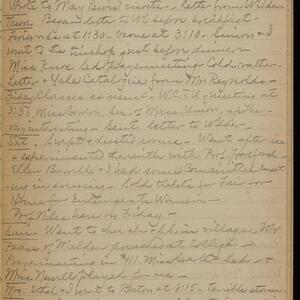 Wrote to May Lewis' mother - Letter from Wilder
Thurs. Began letter to W. before breakfast -
Fireworks at 11:30 - ozone at 3:10 - Simon & I
went to the tinshop just before dinner -
Miss Knox led Prayermeeting - Cold water -
Letter & Yale Catalogue from Mr. Reynolds -
Friday Classes as usual - W.C.T.U. - meeting at
3:35 Miss Gordon, Sec. of Mass. Union, spoke -
Very interesting - Sent letter to Wilder -
Sat. Swept & dusted rooms - Went after ice
& experimented therewith with Prof. Horsford -
Ellen Burrell & I had some Committee meet-
ings in succession - Sold tickets for Fair for
Home for Intemperate Women -
Prof. Niles here on Friday -
Sun. Went to church & S.S. in village, Mr.
Pease of Malden preached at College -
Prayermeeting in 41. Miss led &
Miss Newell played for us -
Mon. Ethel & I went to Boston at 8:15 - terrible storm